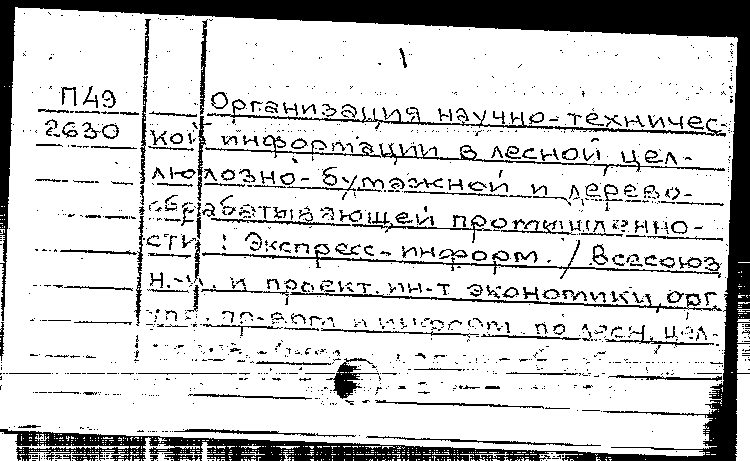 1
П49
2630
Организация научно-техничес-
кой информации в лесной, цел-
люлозно-бумажной и дерево-
обрабатывающей промышленно-
сти : Экспресс-информ. / Всесоюз
н.-и. и проект. ин-т экономики, орг.
упр. пр-вом и информ. по лесн., цел-